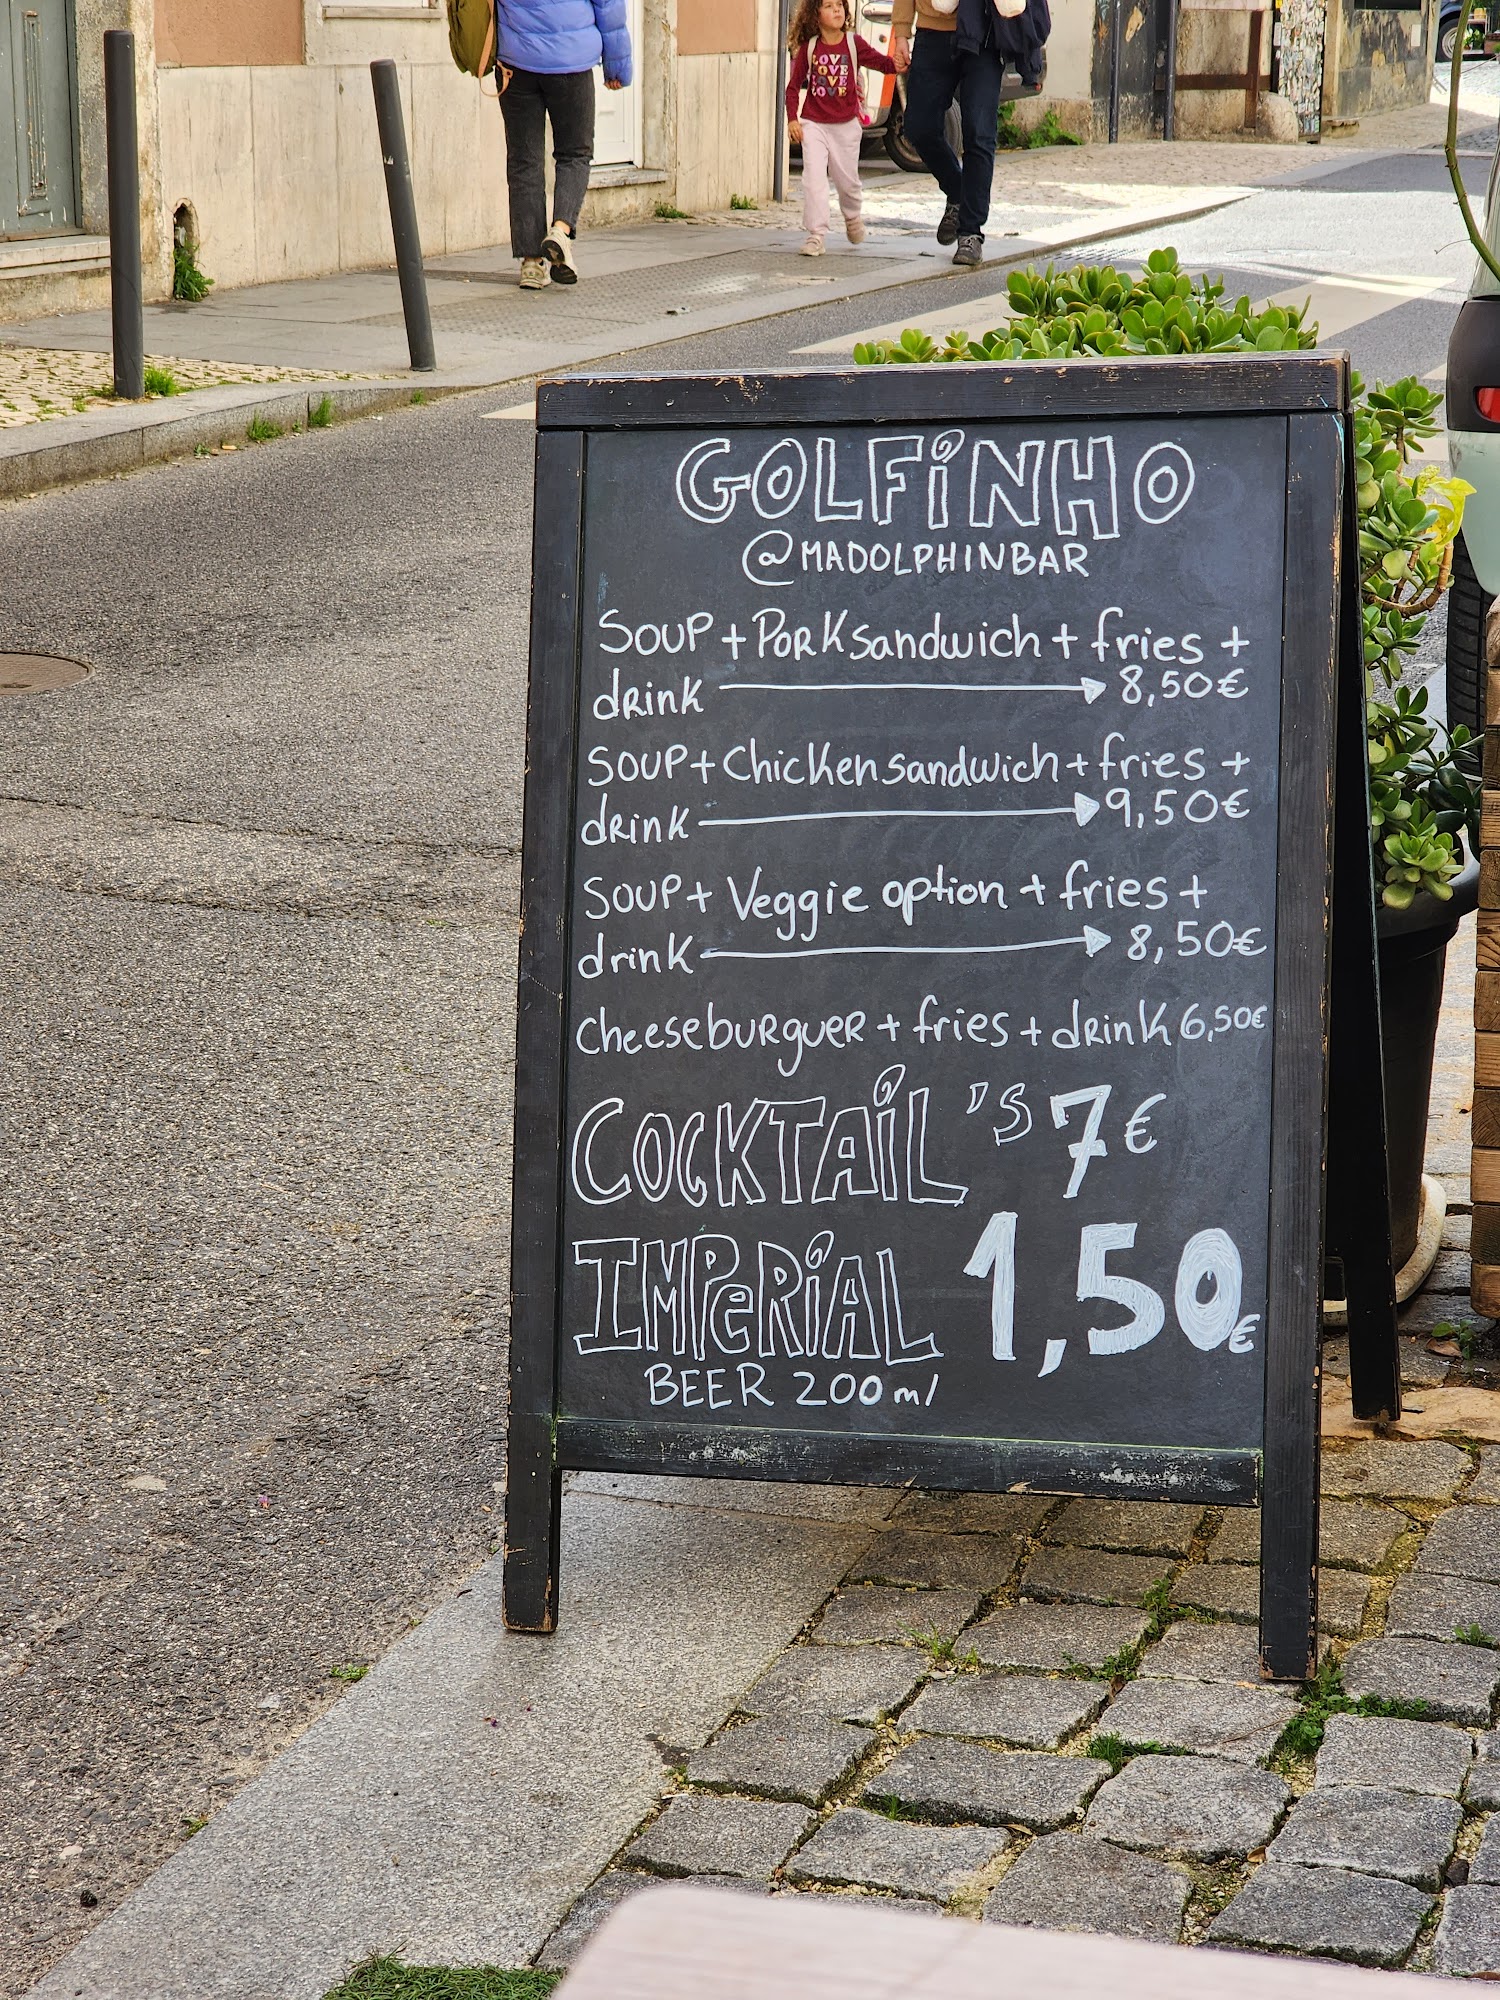 LOVE
LOVE
LOVE
LOVE
GOLFiNHO
@MADOLPHINBAR
SOUP + PORK sandwich + fries +
drink 8,50€
SOUP + Chicken sandwich + fries +
drink 9,50€
SOUP + Veggie option + fries +
drink 8,50€
cheeseburguer + fries + drink 6,50€
COCKTAiL'S 7€
IMPeRiAL 1,50€
BEER 200ml